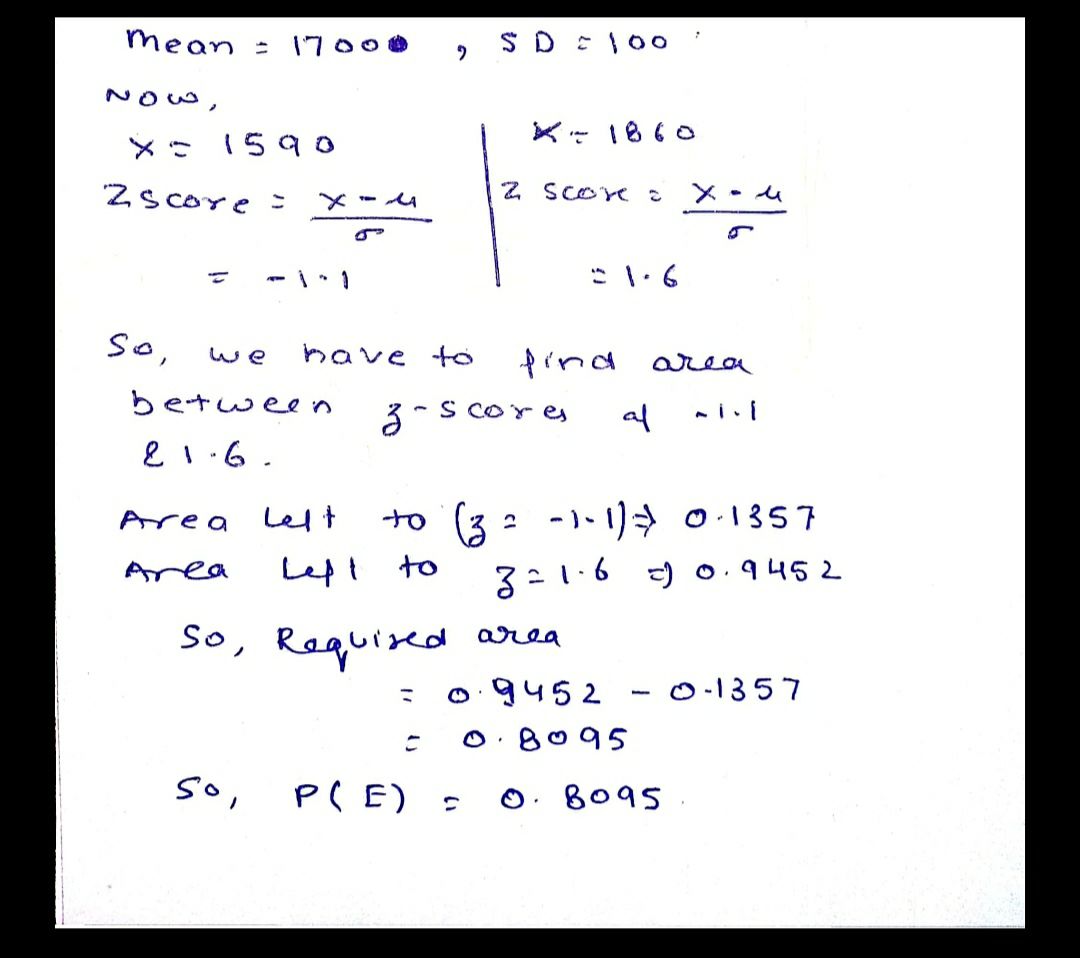 Mean = 1700 , SD = 100
Now,
x = 1590
Z score = x - μ / σ
= -1.1
x = 1860
Z score = x - μ / σ
= 1.6
So, we have to find area
between z-scores of -1.1
& 1.6.
Area left to (z = -1.1) ⇒ 0.1357
Area left to z = 1.6 ⇒ 0.9452
So, Required area
= 0.9452 - 0.1357
= 0.8095
So, P(E) = 0.8095